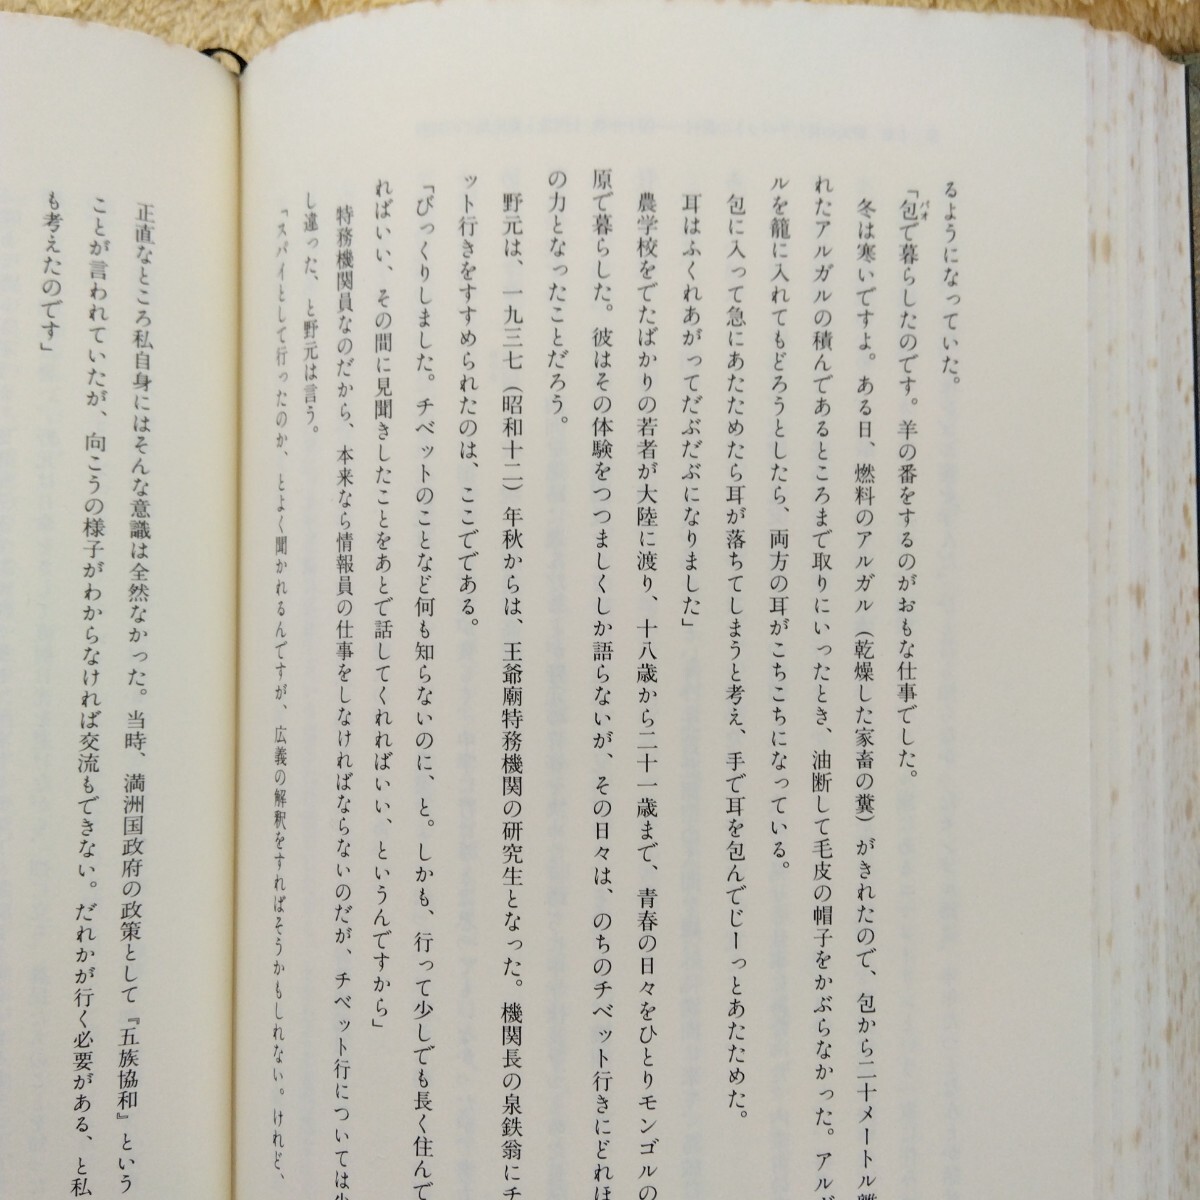 るようになっていた。
「包で暮らしたのです。羊の番をするのがおもな仕事でした。
パオ
冬は寒いですよ。ある日、燃料のアルガル（乾燥した家畜の糞）がきれたので、包から二十メートル離
れたアルガルの積んであるところまで取りにいったとき、油断して毛皮の帽子をかぶらなかった。アルガ
ルを籠に入れてもどろうとしたら、両方の耳がこちこちになっている。
包に入って急にあたためたら耳が落ちてしまうと考え、手で耳を包んでじーっとあたためた。
耳はふくれあがってだぶだぶになりました」
農学校をでたばかりの若者が大陸に渡り、十八歳から二十一歳まで、青春の日々をひとりモンゴルの
原で暮らした。彼はその体験をつつましくしか語らないが、その日々は、のちのチベット行きにどれほ
の力となったことだろう。
野元は、一九三七（昭和十二）年秋からは、王爺廟特務機関の研究生となった。機関長の泉鉄翁にチ
ット行きをすすめられたのは、ここでである。
「びっくりしました。チベットのことなど何も知らないのに、と。しかも、行って少しでも長く住んで
ればいい、その間に見聞きしたことをあとで話してくれればいい、というんですから」
特務機関員なのだから、本来なら情報員の仕事をしなければならないのだが、チベット行については少
し違った、と野元は言う。
「スパイとして行ったのか、とよく聞かれるんですが、広義の解釈をすればそうかもしれない。けれど、
正直なところ私自身にはそんな意識は全然なかった。当時、満洲国政府の政策として『五族協和』という
ことが言われていたが、向こうの様子がわからなければ交流もできない。だれかが行く必要がある、と私
も考えたのです」